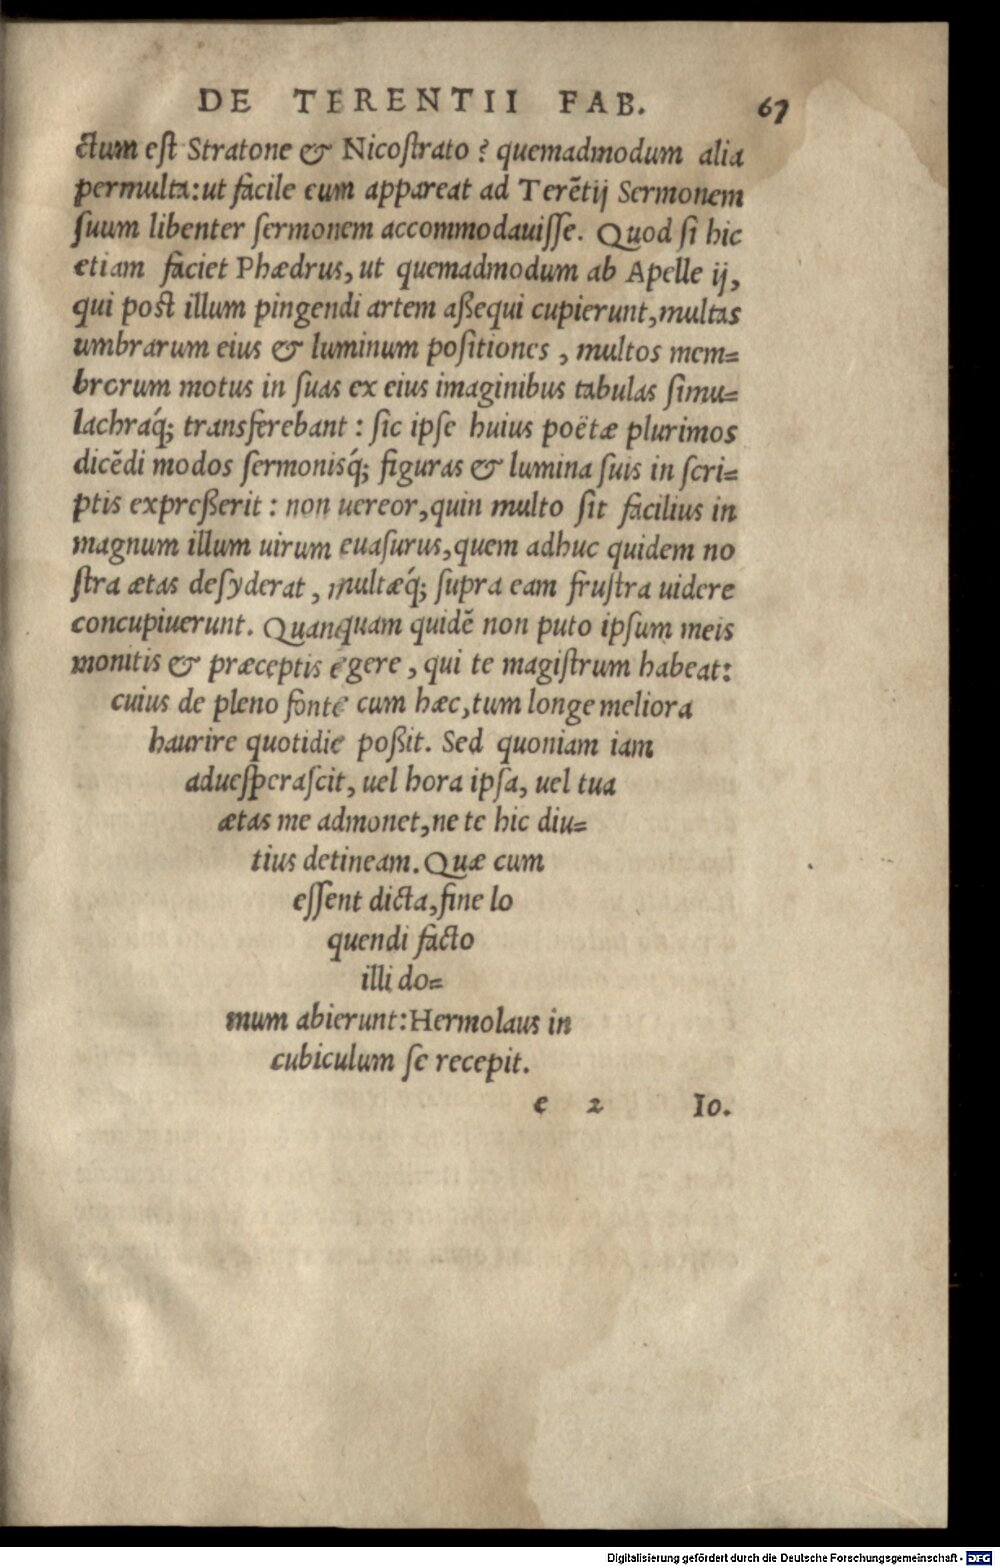 DE TERENTII FAB. 67
ctum est Stratone & Nicostrato? quemadmodum alia
permulta: ut facile eum appareat ad Terētij Sermonem
suum libenter sermonem accommodauisse. Quod si hic
etiam faciet Phædrus, ut quemadmodum ab Apelle ij,
qui post illum pingendi artem aßequi cupierunt, multas
umbrarum eius & luminum positiones, multos mem=
brorum motus in suas ex eius imaginibus tabulas simu=
lachraq́; transferebant: sic ipse huius poëtæ plurimos
dicēdi modos sermonisq́; figuras & lumina suis in scri=
ptis expreßerit: non uereor, quin multo sit facilius in
magnum illum uirum euasurus, quem adhuc quidem no
stra ætas desyderat, multæq́; supra eam frustra uidere
concupiuerunt. Quanquam quidē non puto ipsum meis
monitis & præceptis egere, qui te magistrum habeat:
cuius de pleno fonte cum hæc, tum longe meliora
haurire quotidie poßit. Sed quoniam iam
aduesperascit, uel hora ipsa, uel tua
ætas me admonet, ne te hic diu=
tius detineam. Quæ cum
essent dicta, fine lo
quendi facto
illi do=
mum abierunt: Hermolaus in
cubiculum se recepit.
e 2 Io.
Digitalisierung gefördert durch die Deutsche Forschungsgemeinschaft - DFG